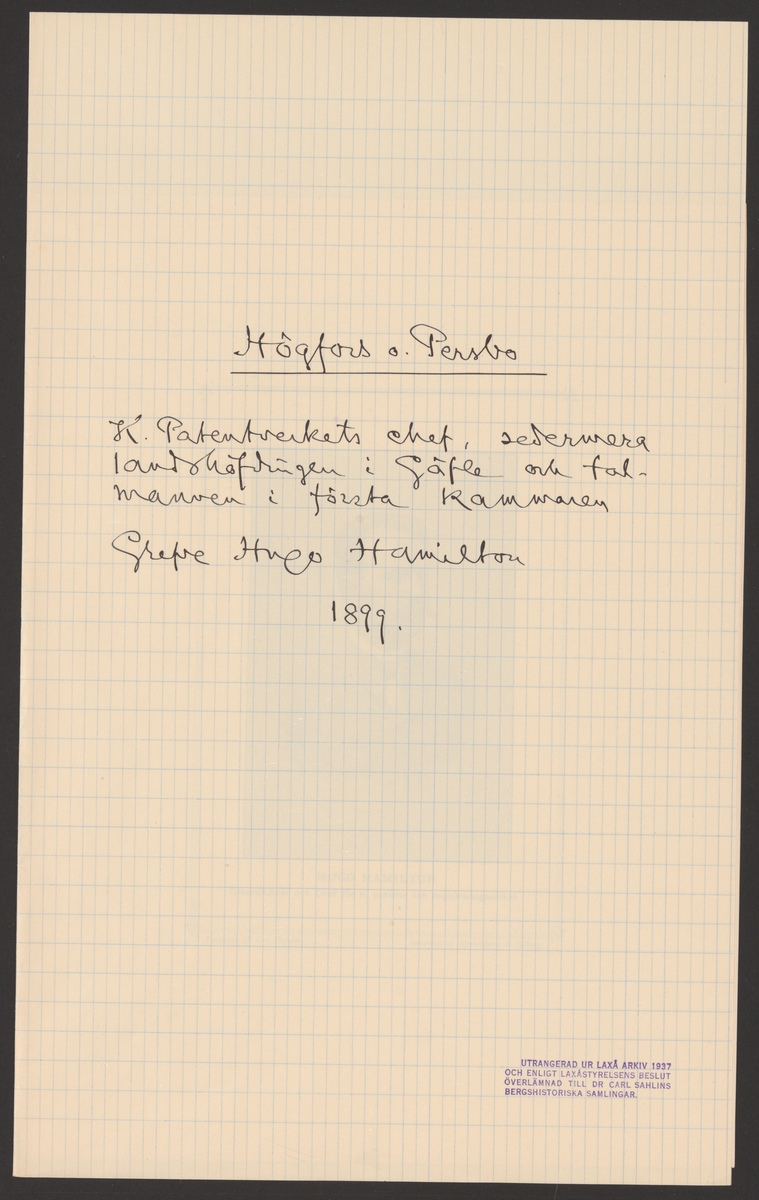 Högfors o. Persbo
K. Patentverkets chef, sedermera
landshöfdingen i Gäfle och tal-
mannen i första kammaren
Grefve Hugo Hamilton
1899.
UTRANGERAD UR LAXÅ ARKIV 1937
OCH ENLIGT LAXÅSTYRELSENS BESLUT
ÖVERLÄMNAD TILL DR CARL SAHLINS
BERGSHISTORISKA SAMLINGAR.